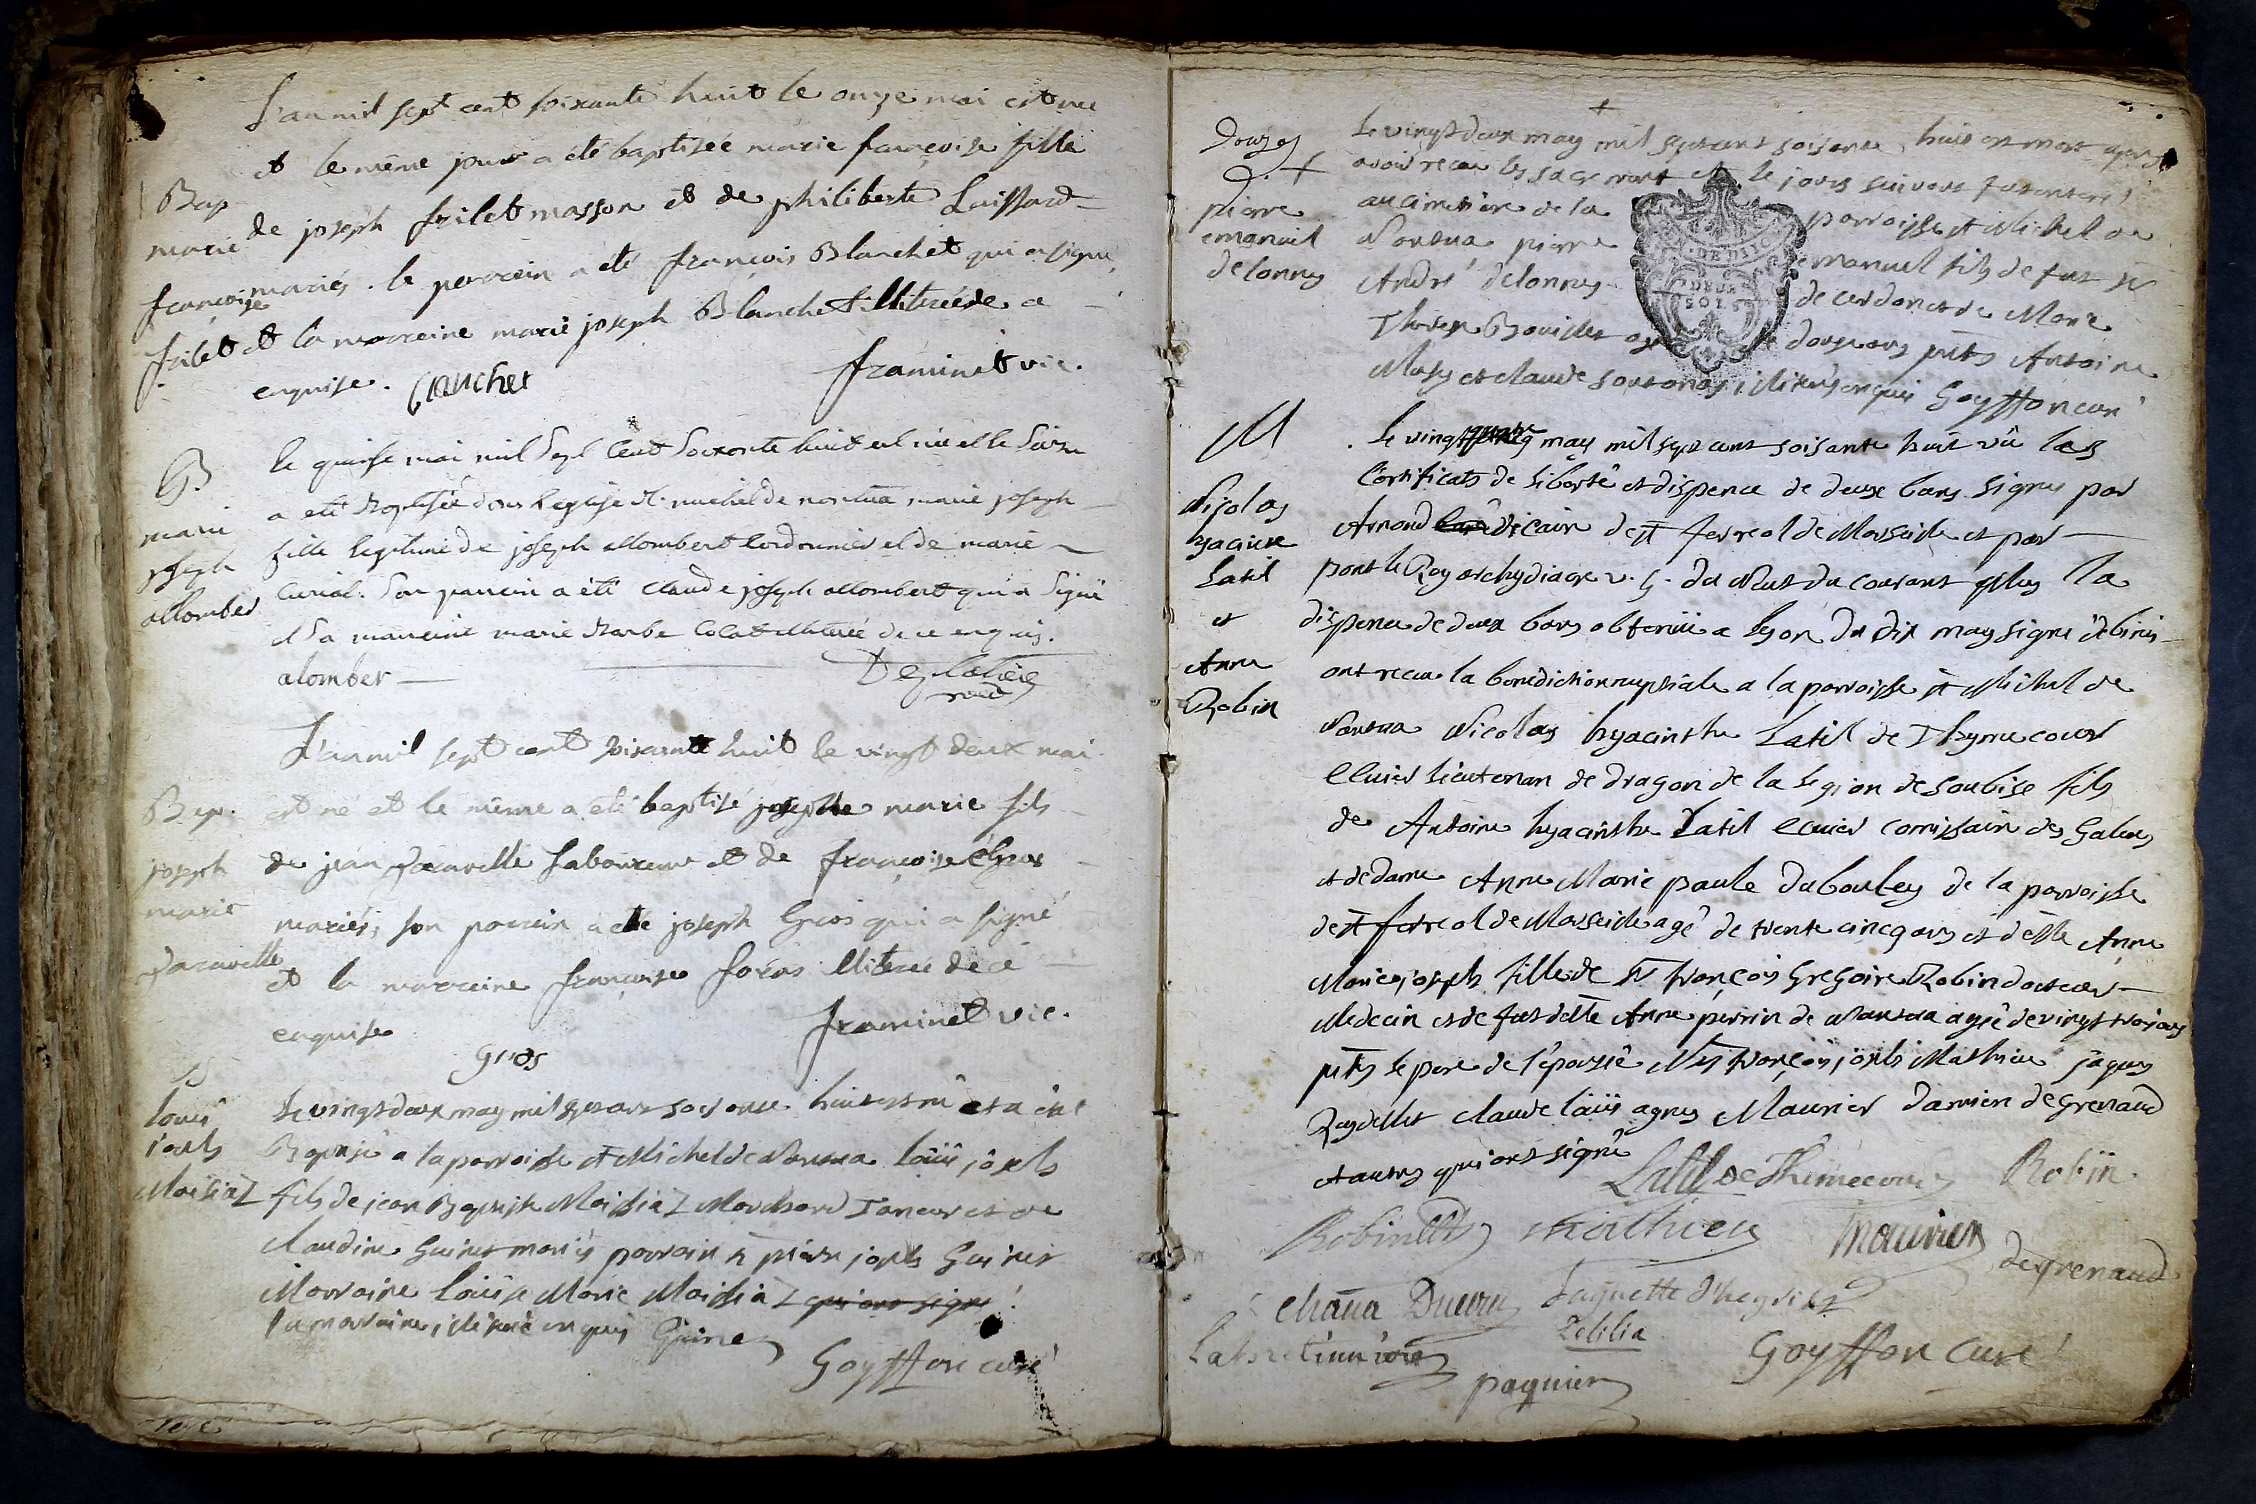 L'an mil sept cent soixante huit le onze mai est née
et le même jour a été baptisée marie françoise fille
de joseph frilet masson et de philiberte Luissard
mariés. le parrein a été françois Blanchet qui a signé,
et la marreine marie joseph Blanchet illiterée de ce
enquise. Blanchet framinet vic.
Bap
marie
françoise
frilet
le quinse mai mil Sept Cent Soixante huit est née et le Soir
a eté Baptisée dans l'eglise st. michel de nantua marie joseph
fille legitime de joseph allombert Cordonnier et de marie
Curial. Son parrein a été Claude joseph allombert qui a Signé
et Sa marreine marie Barbe Colat illiterée de ce enquis.
alomber
B
marie
joseph
allomber
L'an mil sept cent soixante huit le vingt deux mai
est né et le même a été baptisé joseph marie fils
de jean Jacavelle Laboureur et de françoise Gros
mariés, son parrein a été joseph Gros qui a signé
et la marreine françoise foras illiterée de ce
enquise framinet vic.
gros
Bap.
joseph
marie
Jacavelle
Le vingt deux may mil sept cent soixante huit est né et a été
Baptisé a la parroisse st Michel de Nantua Loüis joseph
fils de jean Baptiste Maissiaz Marchand Taneur et de
Claudine Guinet mariés parrain sr pierre joseph Guinet
Marraine Loüise Marie Maissiaz qui ont signé
la marraine illiterée enquis Guinet
Goyffon curé
B
Louis
joseph
Maissiaz
Le vingt deux may mil sept cent soisante huit est mort apres
avoir receu les sacremens et le jour suivant fut enterré
au cimetiere de la parroisse st Michel de
Nantua pierre emanuel fils de fut sr
André delonnes de cerdon et de Marie
Therese Bouillet agé de douze ans pnts Antoine
Musy et Claude illiterés enquis Goyffon curé
douzes
D. +
pierre
emanuel
delonnes
Le vingt quatre may mil sept cent soisante huit vû les
Certificats de Liberté et dispence de deux bans signes par
Arnoud vicaire de st ferreol de Marseille et par
pont le Roy archydiacre v. g. du huit du courant plus la
dispence de deux bans obtenüe a Lyon du dix may signé
ont receu la benediction nuptiale a la parroisse st Michel de
Nantua Nicolas hyacinthe Latil de Thymecour
Ecuier Lieutenan de dragon de la Legion de soubise fils
de Antoine hyacinthe Latil ecuier comissaire des Galeres
et de dame Anne Marie paule Dabouley de la parroisse
de st ferreol de Marseille agé de trente cinq ans et dlle Anne
Marie joseph fille de sr françois Gregoire Robin docteur
Medecin et de fut dlle Anne perrin de Nantua agée de vingt trois ans
pnts le pere de l'epouse Mrs françois joseph Mathieu jaques
Claude Loüis agnes Maurier Damien de Grenaud
et autres qui ont signé
M
Nicolas
yacinte
Latil
et
Anne
Robin
Latil de Thimecourt Robin
Mathieu Maurier
degrenaud
Goyffon Curé
paquier